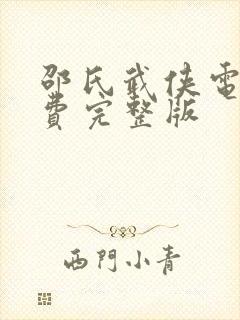 邵氏武侠電
費完整版
西門小青